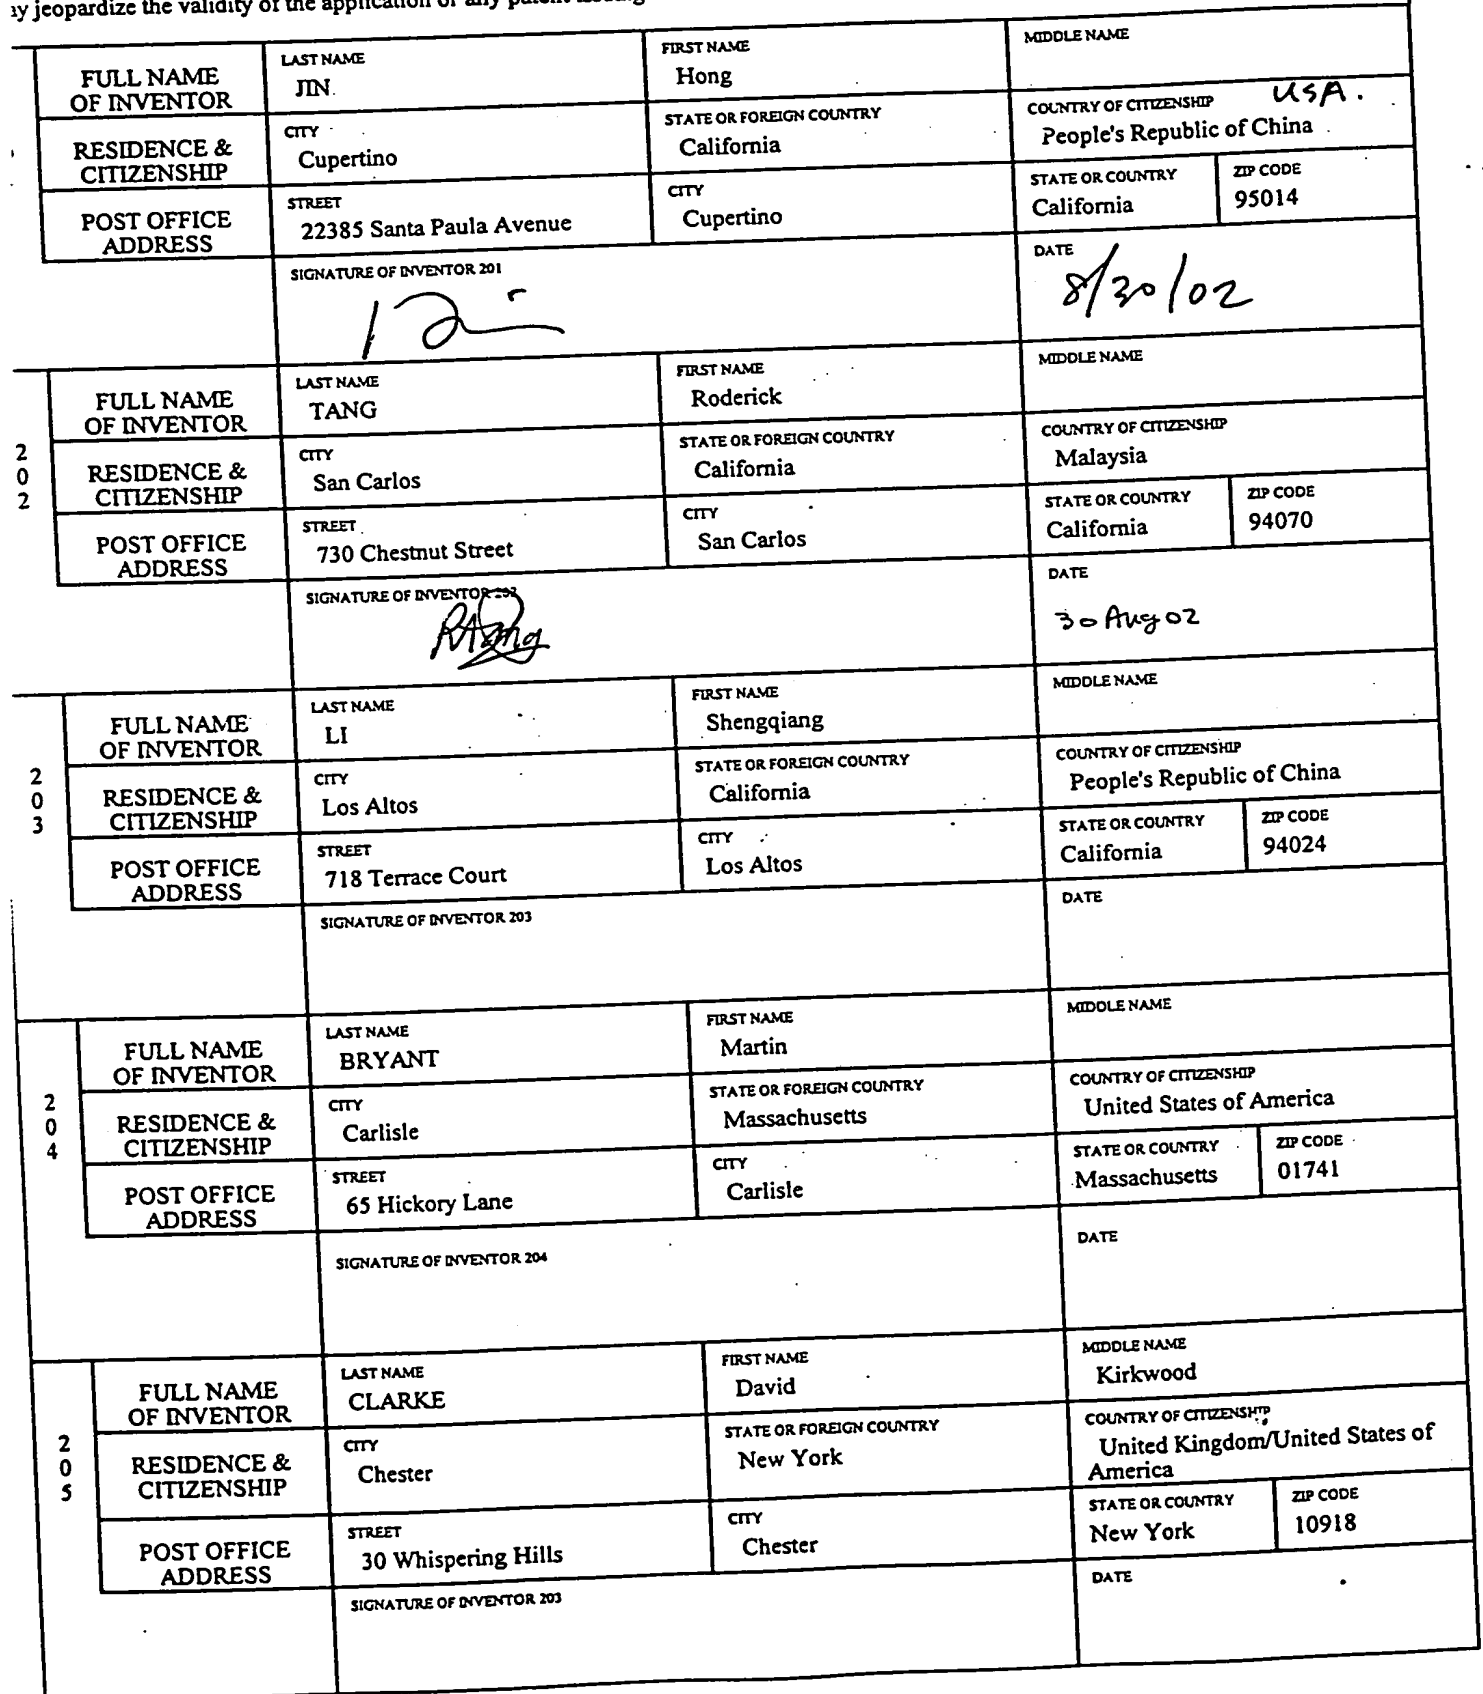 ay jeopardize the validity of the application or any patent issuing
FULL NAME
OF INVENTOR
LAST NAME
JIN
FIRST NAME
Hong
MIDDLE NAME
RESIDENCE &
CITIZENSHIP
CITY
Cupertino
STATE OR FOREIGN COUNTRY
California
COUNTRY OF CITIZENSHIP USA.
People's Republic of China
POST OFFICE
ADDRESS
STREET
22385 Santa Paula Avenue
CITY
Cupertino
STATE OR COUNTRY
California
ZIP CODE
95014
SIGNATURE OF INVENTOR 201
DATE
8/30/02
202
FULL NAME
OF INVENTOR
LAST NAME
TANG
FIRST NAME
Roderick
MIDDLE NAME
RESIDENCE &
CITIZENSHIP
CITY
San Carlos
STATE OR FOREIGN COUNTRY
California
COUNTRY OF CITIZENSHIP
Malaysia
POST OFFICE
ADDRESS
STREET
730 Chestnut Street
CITY
San Carlos
STATE OR COUNTRY
California
ZIP CODE
94070
SIGNATURE OF INVENTOR 202
DATE
30 Aug 02
203
FULL NAME
OF INVENTOR
LAST NAME
LI
FIRST NAME
Shengqiang
MIDDLE NAME
RESIDENCE &
CITIZENSHIP
CITY
Los Altos
STATE OR FOREIGN COUNTRY
California
COUNTRY OF CITIZENSHIP
People's Republic of China
POST OFFICE
ADDRESS
STREET
718 Terrace Court
CITY
Los Altos
STATE OR COUNTRY
California
ZIP CODE
94024
SIGNATURE OF INVENTOR 203
DATE
204
FULL NAME
OF INVENTOR
LAST NAME
BRYANT
FIRST NAME
Martin
MIDDLE NAME
RESIDENCE &
CITIZENSHIP
CITY
Carlisle
STATE OR FOREIGN COUNTRY
Massachusetts
COUNTRY OF CITIZENSHIP
United States of America
POST OFFICE
ADDRESS
STREET
65 Hickory Lane
CITY
Carlisle
STATE OR COUNTRY
Massachusetts
ZIP CODE
01741
SIGNATURE OF INVENTOR 204
DATE
205
FULL NAME
OF INVENTOR
LAST NAME
CLARKE
FIRST NAME
David
MIDDLE NAME
Kirkwood
RESIDENCE &
CITIZENSHIP
CITY
Chester
STATE OR FOREIGN COUNTRY
New York
COUNTRY OF CITIZENSHIP
United Kingdom/United States of
America
POST OFFICE
ADDRESS
STREET
30 Whispering Hills
CITY
Chester
STATE OR COUNTRY
New York
ZIP CODE
10918
SIGNATURE OF INVENTOR 203
DATE